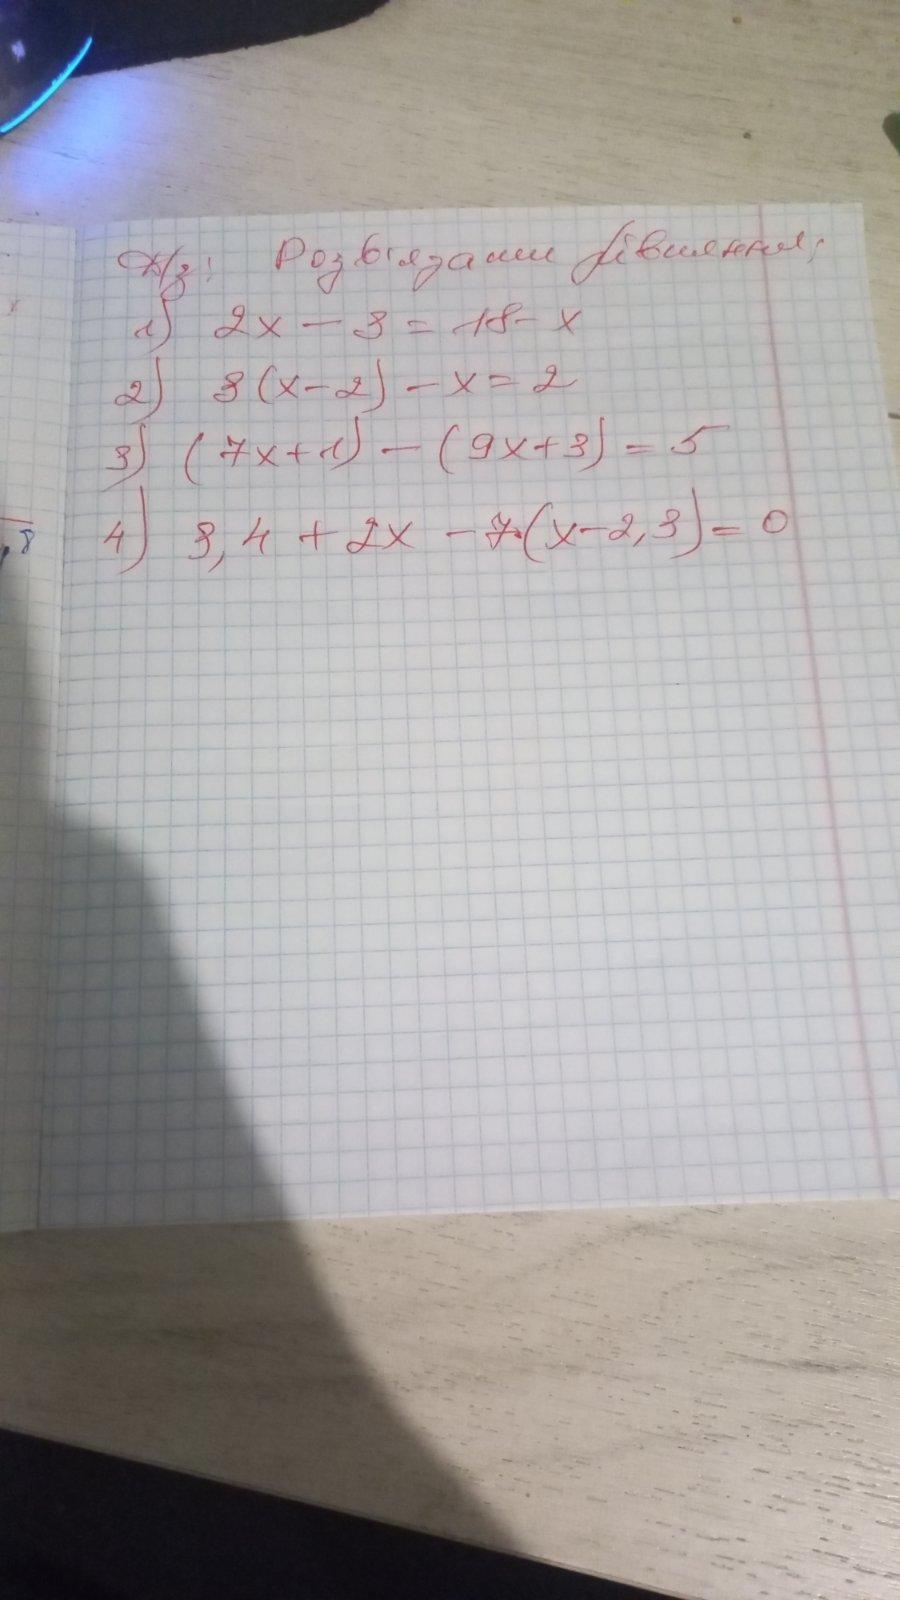 Д/з: Розв'язати рівняння:
1) 2x - 3 = 18 - x
2) 3(x-2) - x = 2
3) (7x+1) - (9x+3) = 5
4) 3,4 + 2x - 7·(x-2,3) = 0
,8